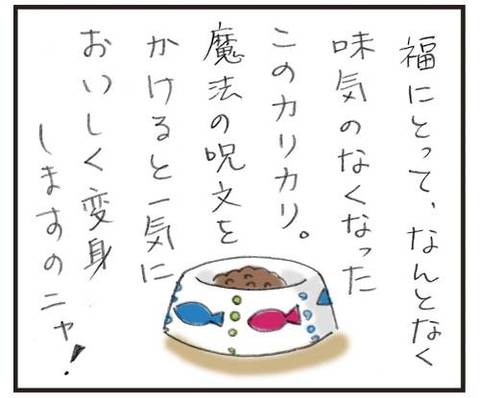 福にとって、なんとなく
味気のなくなった
このカリカリ。
魔法の呪文を
かけると一気に
おいしく変身
しますのニャ!